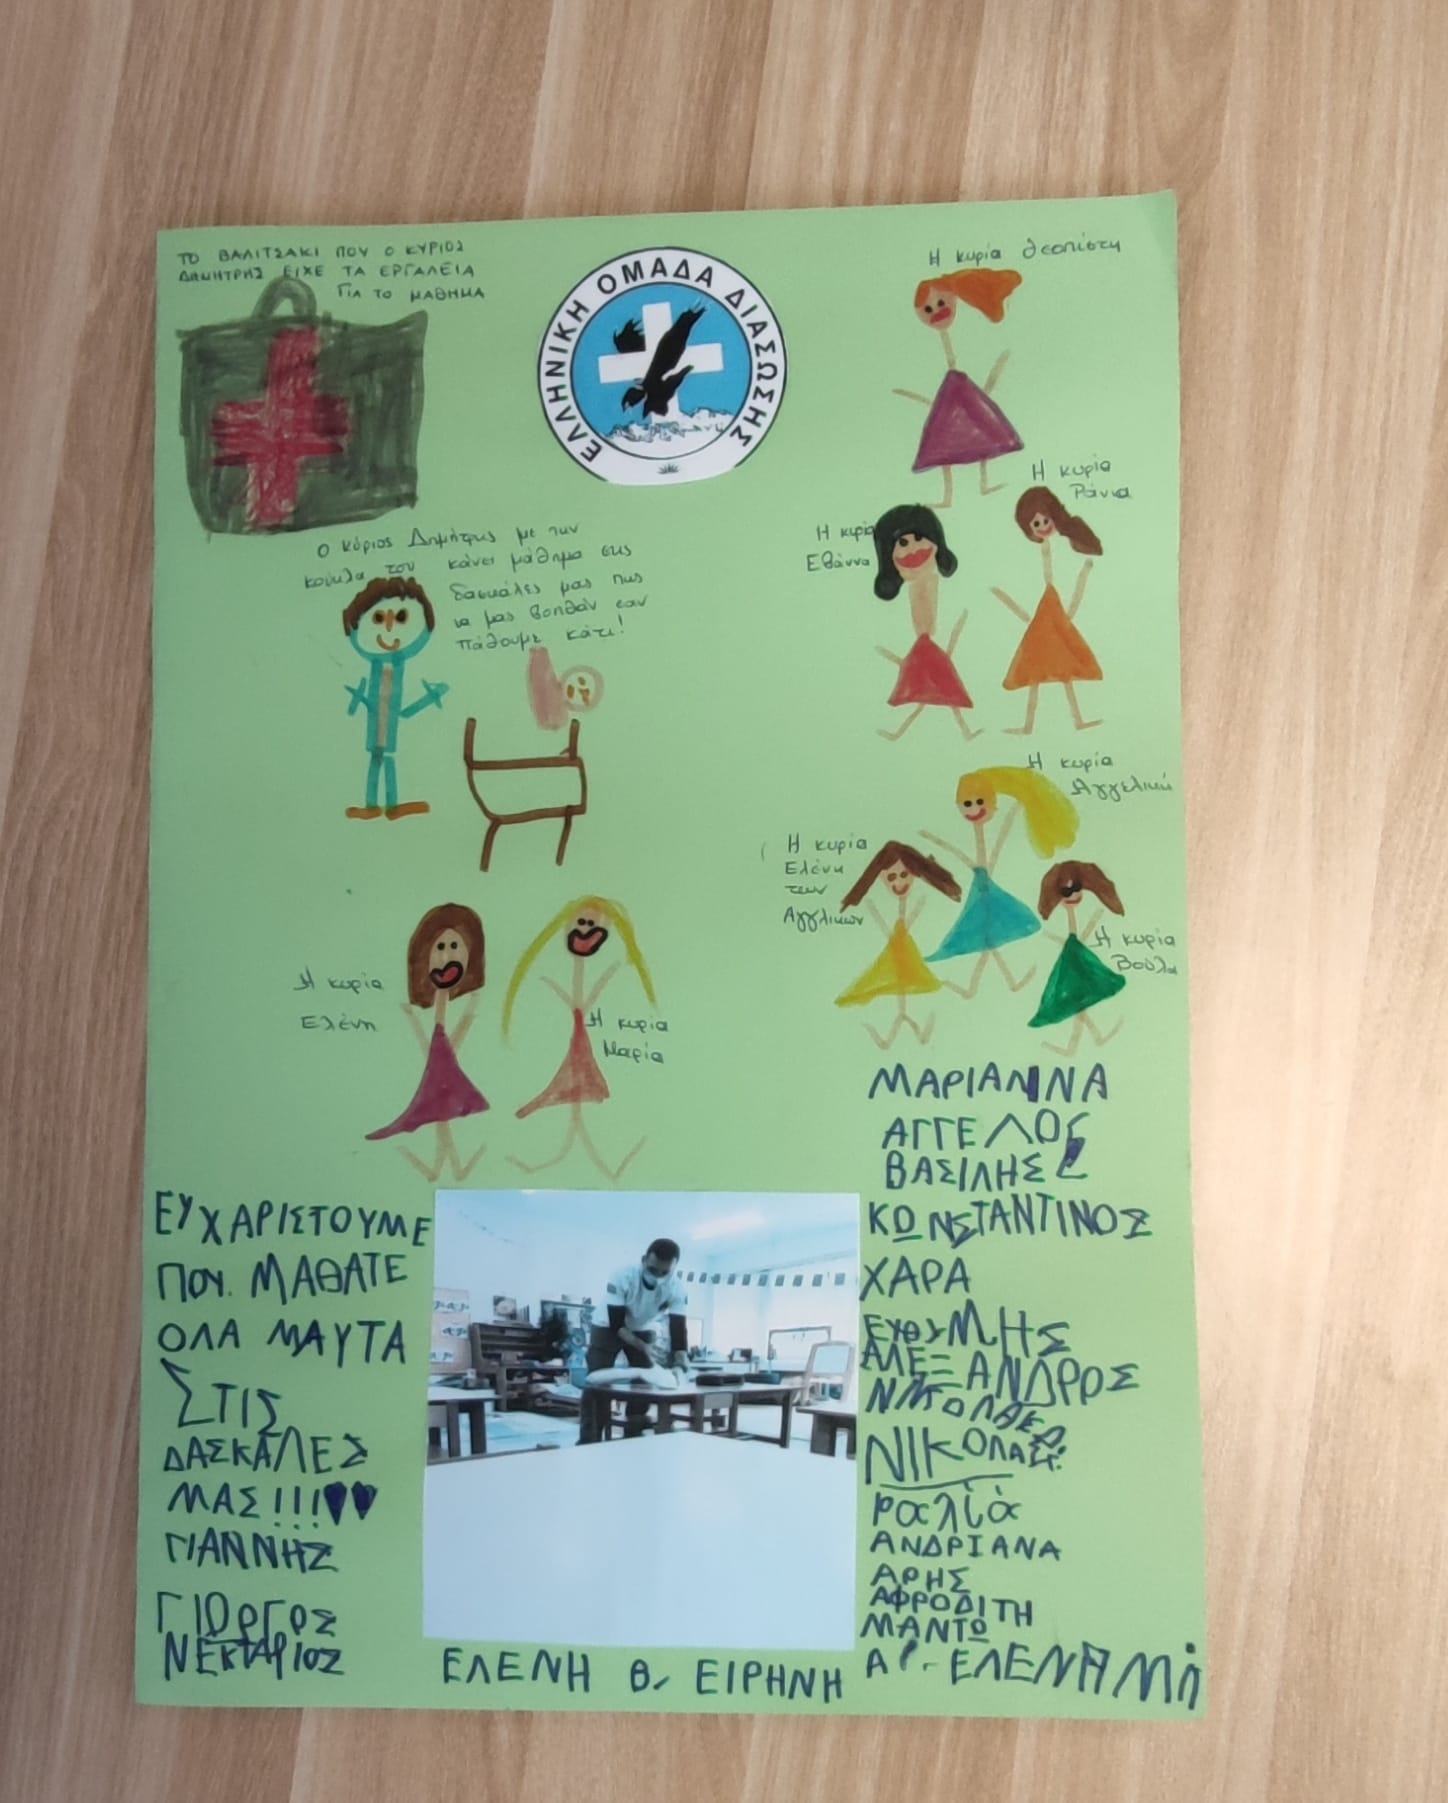 ΤΟ ΒΑΛΙΤΣΑΚΙ ΠΟΥ Ο ΚΥΡΙΟΣ
ΔΗΜΗΤΡΗΣ ΕΙΧΕ ΤΑ ΕΡΓΑΛΕΙΑ
ΓΙΑ ΤΟ ΜΑΘΗΜΑ
ΕΛΛΗΝΙΚΗ ΟΜΑΔΑ ΔΙΑΣΩΣΗΣ
Η κυρία Θεοπίστη
Η κυρία
Ράνια
Η κυρία
Εβάννα
Ο κύριος Δημήτρης με την
κούκλα του κάνει μάθημα στις
δασκάλες μας πως
να μας βοηθάν εαν
πάθουμε κάτι!
Η κυρία
Αγγελική
Η κυρία
Ελένη
των
Αγγλικων
Η κυρία
Βούλα
Η κυρία
Ελένη
Η κυρία
Μαρία
ΕΥΧΑΡΙΣΤΟΥΜΕ
ΠΟΥ. ΜΑΘΑΤΕ
ΟΛΑ ΜΑΥΤΑ
ΣΤΙΣ
ΔΑΣΚΑΛΕΣ
ΜΑΣ!!!
ΓΙΑΝΝΗΣ
ΓΙΩΡΓΟΣ
ΝΕΚΤΑΡΙΟΣ
ΕΛΕΝΗ Β. ΕΙΡΗΝΗ
ΜΑΡΙΑΝΝΑ
ΑΓΓΕΛΟΣ
ΒΑΣΙΛΗΣ
ΚΩΝΣΤΑΝΤΙΝΟΣ
ΧΑΡΑ
ΕΥΘΥΜΗΣ
ΑΛΕΞΑΝΔΡΟΣ
ΝΙΚΟΛΑΣ
Ραλία
ΑΝΔΡΙΑΝΑ
ΑΡΗΣ
ΑΦΡΟΔΙΤΗ
ΜΑΝΤΩ
ΕΛΕΝΑ